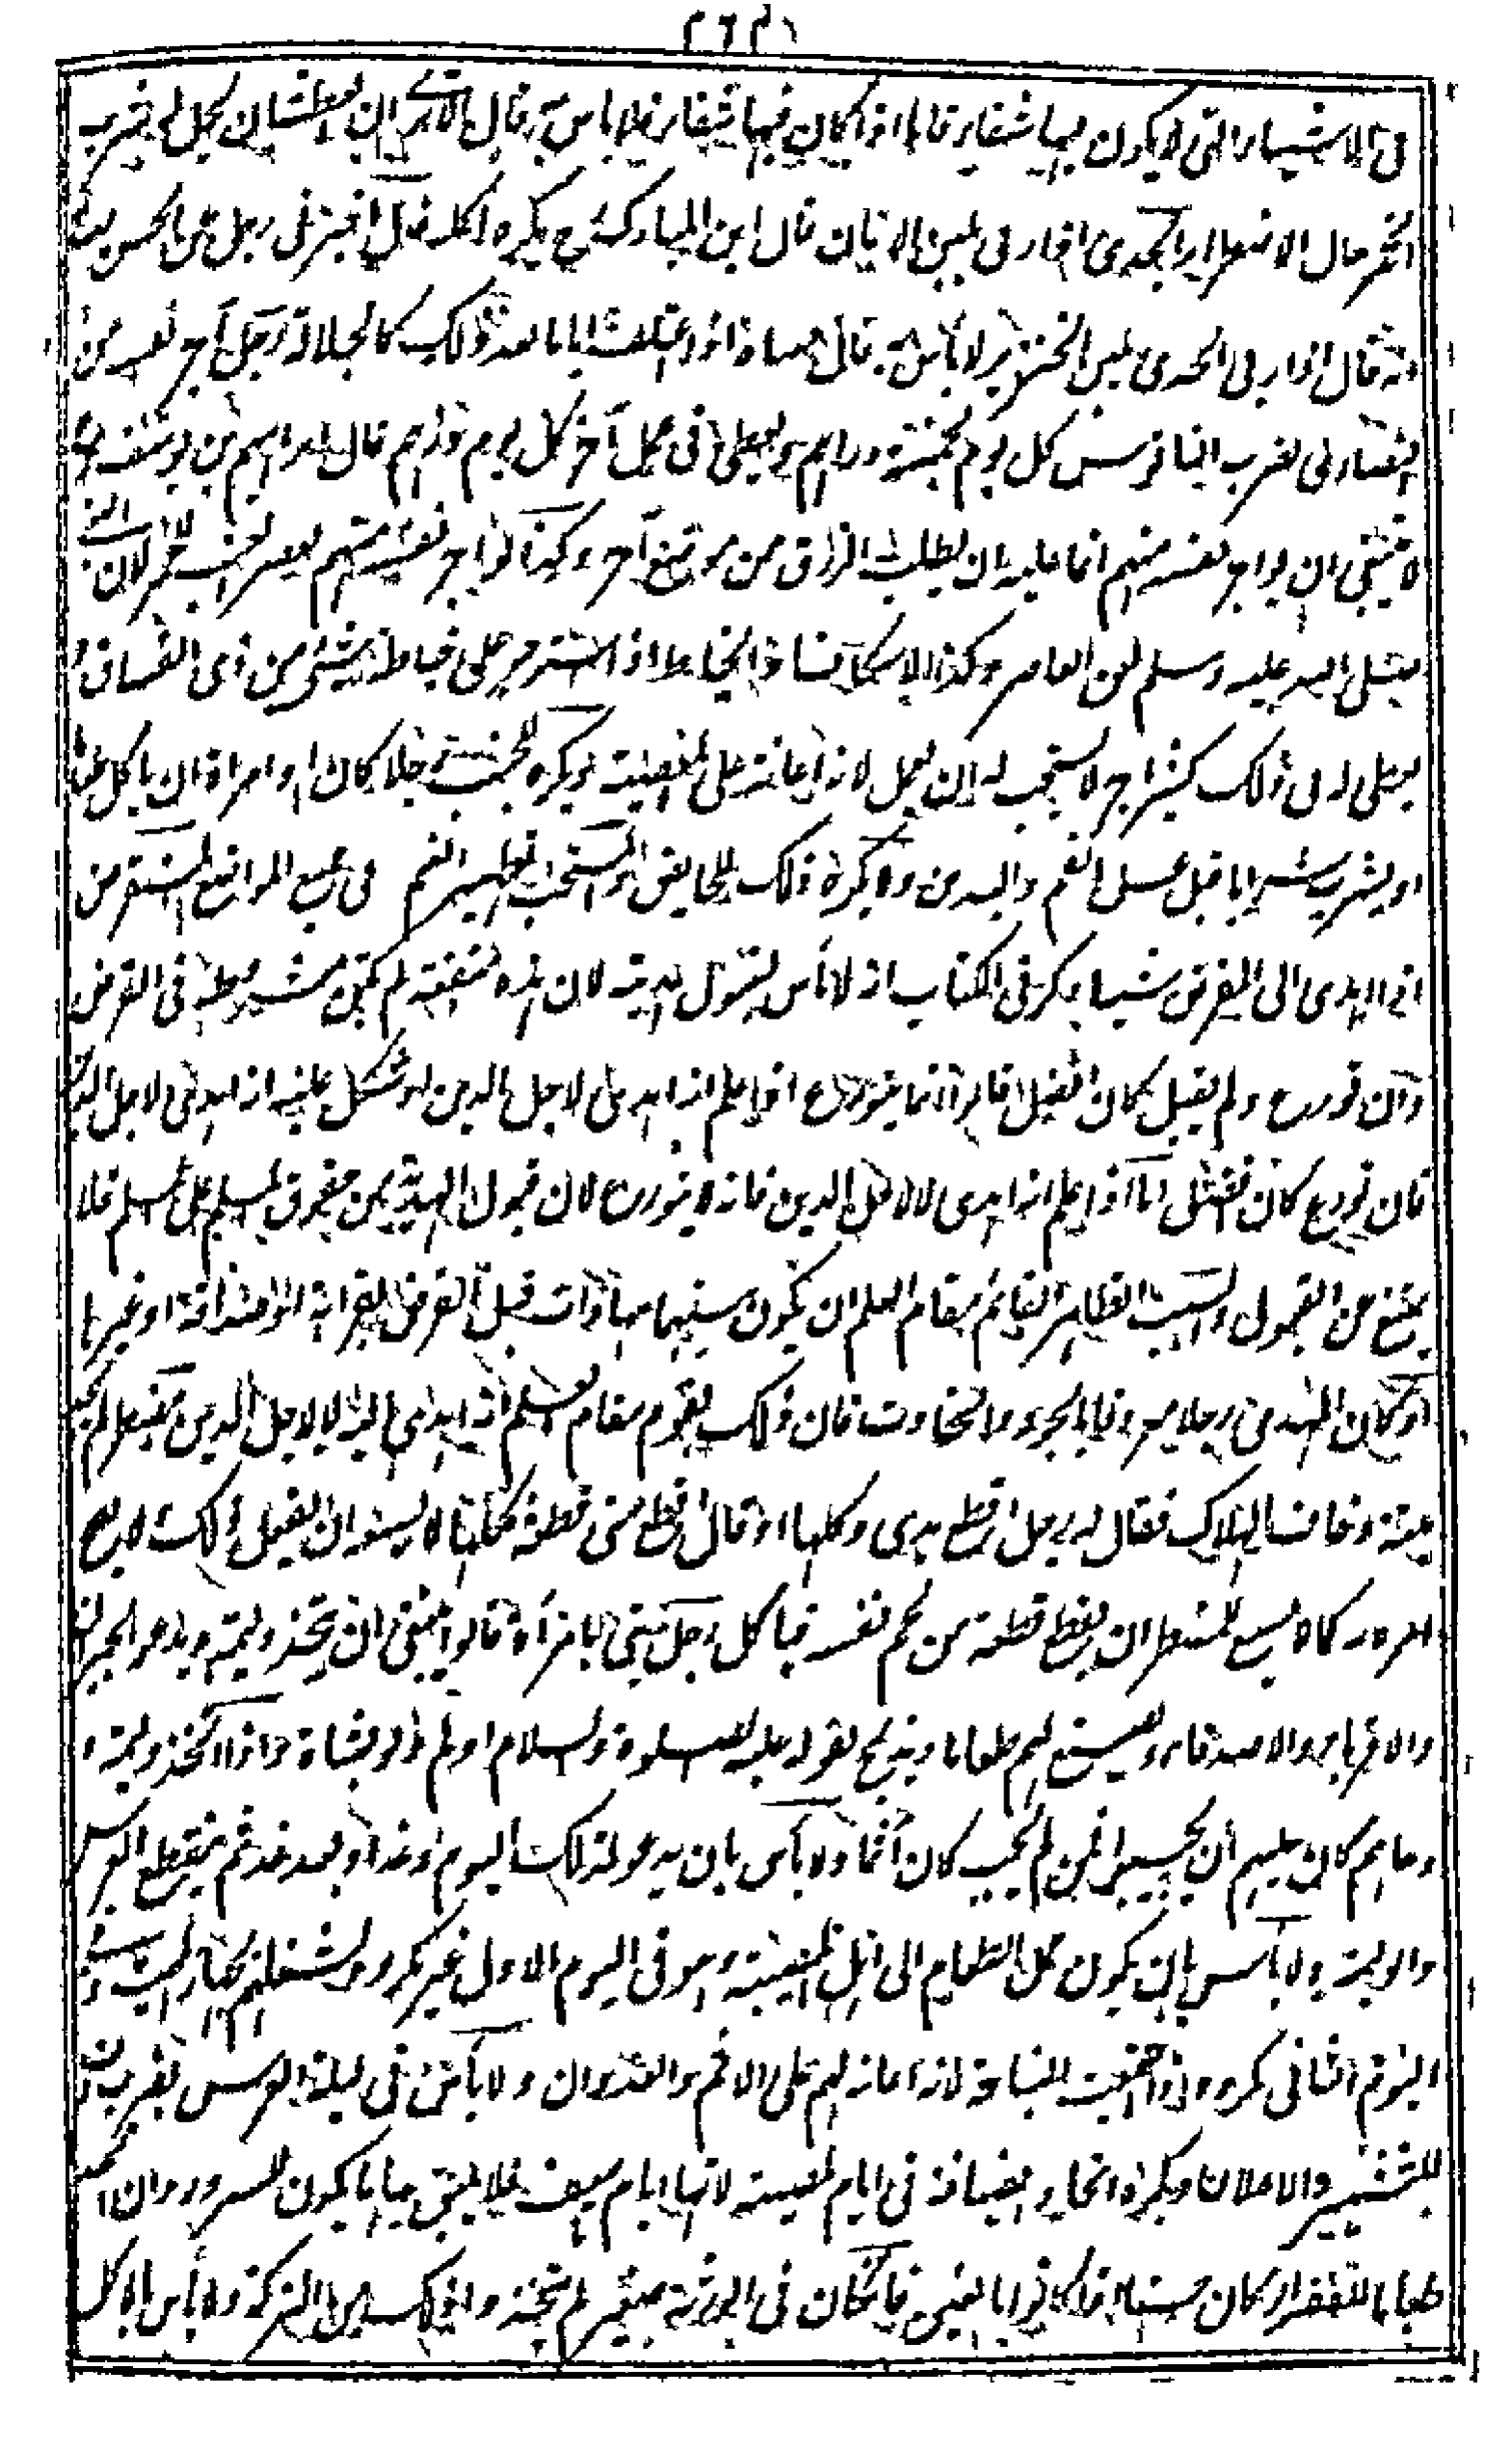 في الاشياء التي لا يكون فيها شفاء فاما اذا كان فيها شفاء فلا باس به قال الا ترى ان العطشان يحل له شرب
الخمر حال الاضطرار الجدي اذا ربي بلبن الاتان قال ابن المبارك رح يكره اكله قال اخبرني رجل عن الحسن
انه قال اذا ربي الجدي بلبن الخنزير لا باس به قال معناه اذا اعتلف اياما بعد ذلك كالجلالة رجل آجر نفسه من
النصارى لضرب الناقوس كل يوم بخمسة دراهم ويعطى في عمل آخر كل يوم درهم قال ابراهيم بن يوسف
لا ينبغي ان يواجر نفسه منهم انما عليه ان يطلب الرزق من موضع آخر وكذا لو آجر نفسه منهم بعصر العنب للخمر لان النبي
صلى الله عليه وسلم لعن العاصر وكذا الاسكاف والخياط اذا استوجر على خياطة شيء من زي الفساق
يعطى له في ذلك كثير اجر لا يستحب له ان يعمل لانه اعانة على المعصية ويكره للجنب رجلا كان او امراة ان ياكل طعاما
او يشرب شرابا قبل غسل الفم واليدين ولا يكره ذلك للحايض والمستحب تطهير الفم في جميع المواضع المستقرض
اذا اهدى الى المقرض شيئا ذكر في الكتاب انه لا باس بقبول هديته لان هذه منفعة لم تكن مشروطة في القرض
وان تورع ولم يقبل كان افضل قالوا انما يتورع اذا علم انه اهدى لاجل الدين او اشكل عليه انه اهدى لاجل الدين
فان تورع كان افضل اما اذا علم انه اهدى لا لاجل الدين فانه لا يتورع لان قبول الهدية من حقوق المسلم على المسلم فلا
يمتنع من القبول والسبب الظاهر القائم مقام العلم ان يكون بينهما مهاداة قبل القرض لقرابة او صداقة او غيرها
او كان المهدي رجلا معروفا بالجود والسخاوت فان ذلك يقوم مقام العلم انه اهدي اليه لا لاجل الدين مضطر لم يجد
ميتة وخاف الهلاك فقال له رجل اقطع يدي وكلها او قال اقطع مني قطعة فكلها لا يسعه ان يفعل ذلك ولا يصح
امره به كما لا يسع للمضطر ان يقطع قطعة من لحم نفسه فياكل رجل بنى بامراة قالوا ينبغي ان يتخذ وليمة ويدعو الجيران
والاقرباء والاصدقاء ويصنع لهم طعاما ويذبح لقوله عليه الصلوة والسلام اولم ولو بشاة واذا اتخذ وليمة و
دعاهم كان عليهم ان يجيبوا فمن لم يجب كان آثما ولا باس بان يدعو لذلك اليوم او غدا او بعد غد ثم ينقطع العرس
والوليمة ولا باس بان يكون حمل الطعام الى اهل المصيبة وهو في اليوم الاول غير مكروه لشغلهم بجهاز الميت وفي
اليوم الثاني مكروه اذا اجتمعت النياحة لانه اعانة لهم على الاثم والعدوان ولا باس في ليلة العرس بضرب الدف
للتشهير والاعلان ويكره اتخاذ الضيافة في ايام المصيبة لانها ايام تاسف فلا يليق بها ما يكون للسرور وان اتخذ
طعاما للفقراء كان حسنا اذا كانوا بالغين فان كان في الورثة صغير لم يتخذوا ذلك من التركة ولا باس بالاكل